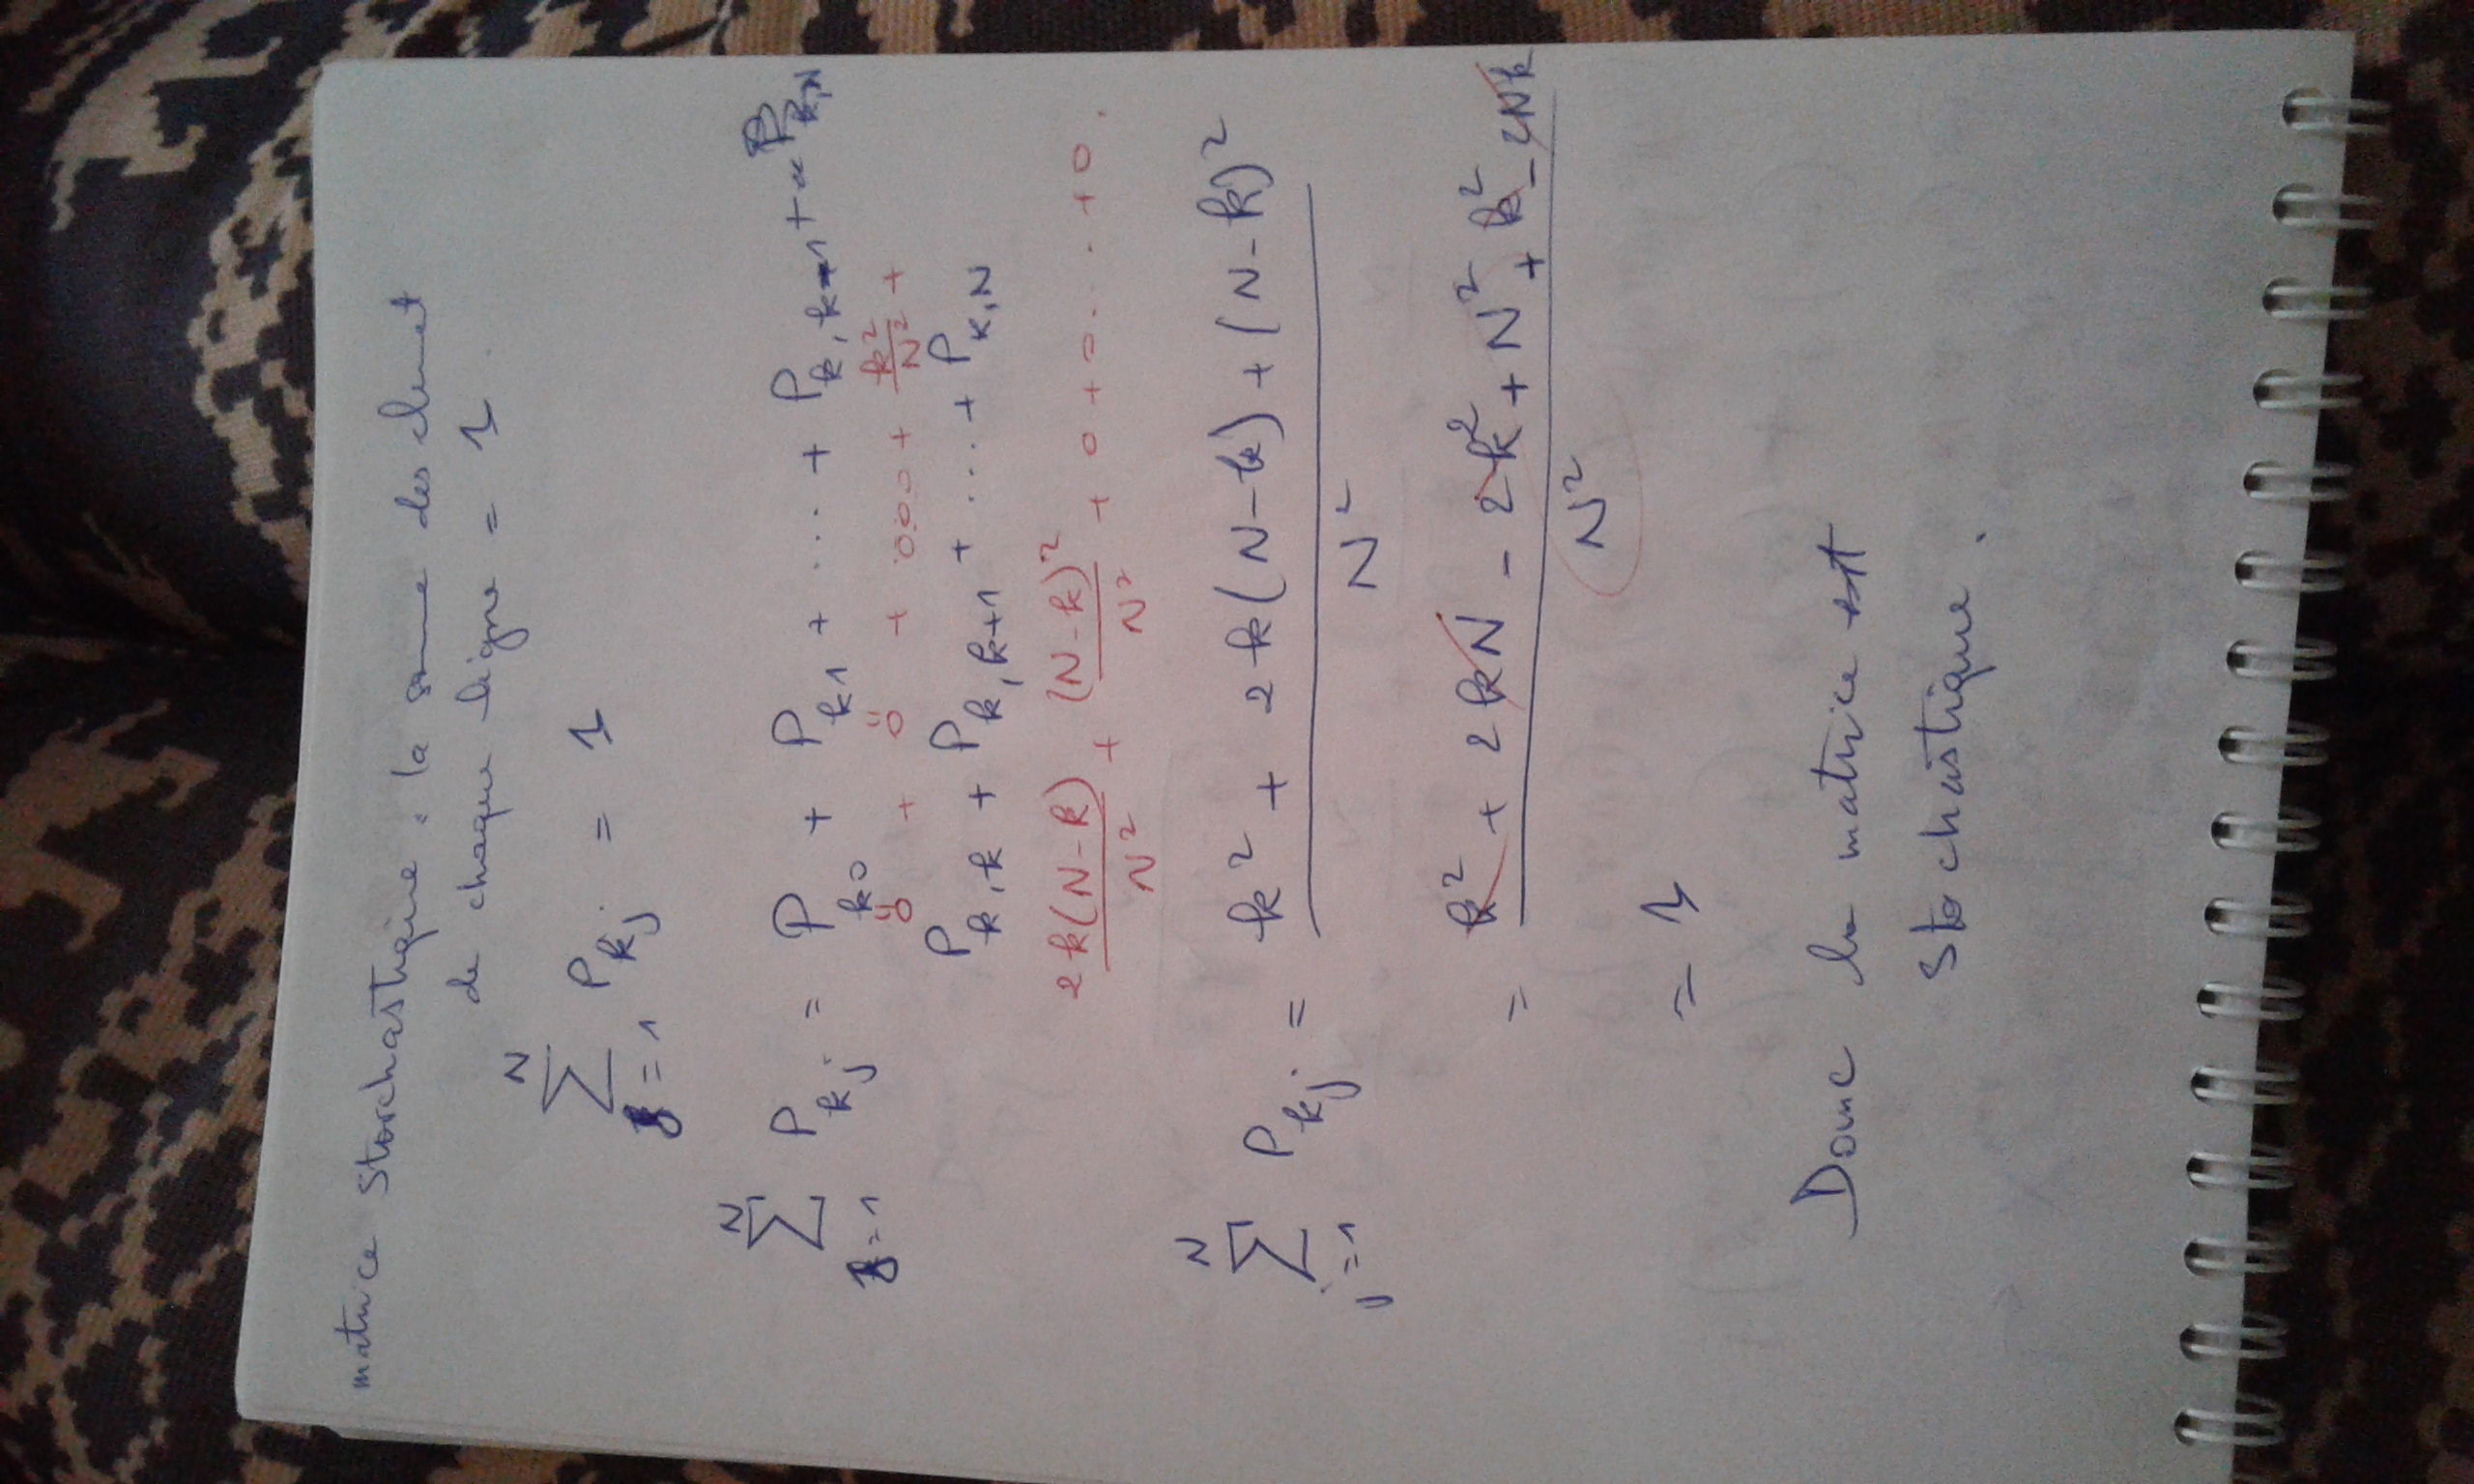 matrice Storchastique : la somme des element
de chaque ligne = 1.
N
∑ P_kj = 1
j=1
N
∑ P_kj = P_k0 + P_k1 + ... + P_k,k-1 + .. P_k,N
j=1
0 + 0 + 000 + k²/N² +
P_k,k + P_k,k+1 + ... + P_k,N
2k(N-k)/N² + (N-k)²/N² + 0 + 0 ... + 0.
N
∑ P_kj = (k² + 2k(N-k) + (N-k)²)/N²
j=1
= (k² + 2kN - 2k² + N² + k² - 2Nk)/N²
= 1
Donc la matrice est
Stochastique.